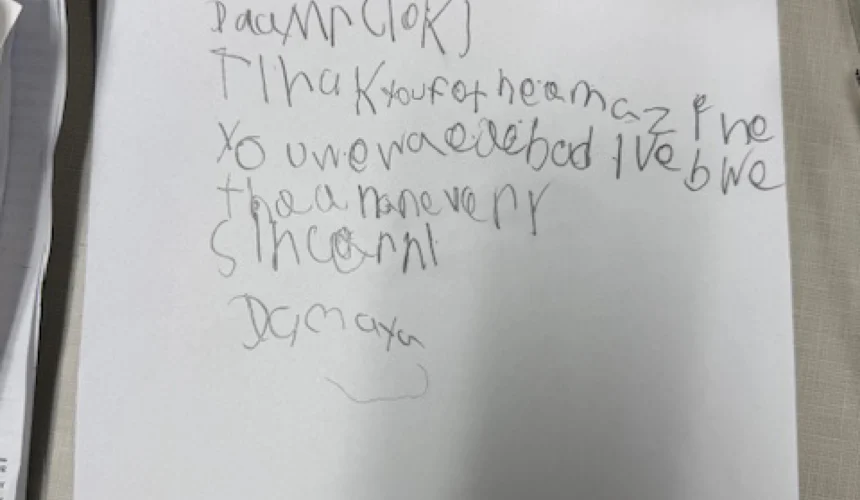 DaaMr ClOK)
TIhaKyoufot heamaz Phe
Yo uwewaedebad IVe bwe
thea maneverr
SIncarnl
Damaya